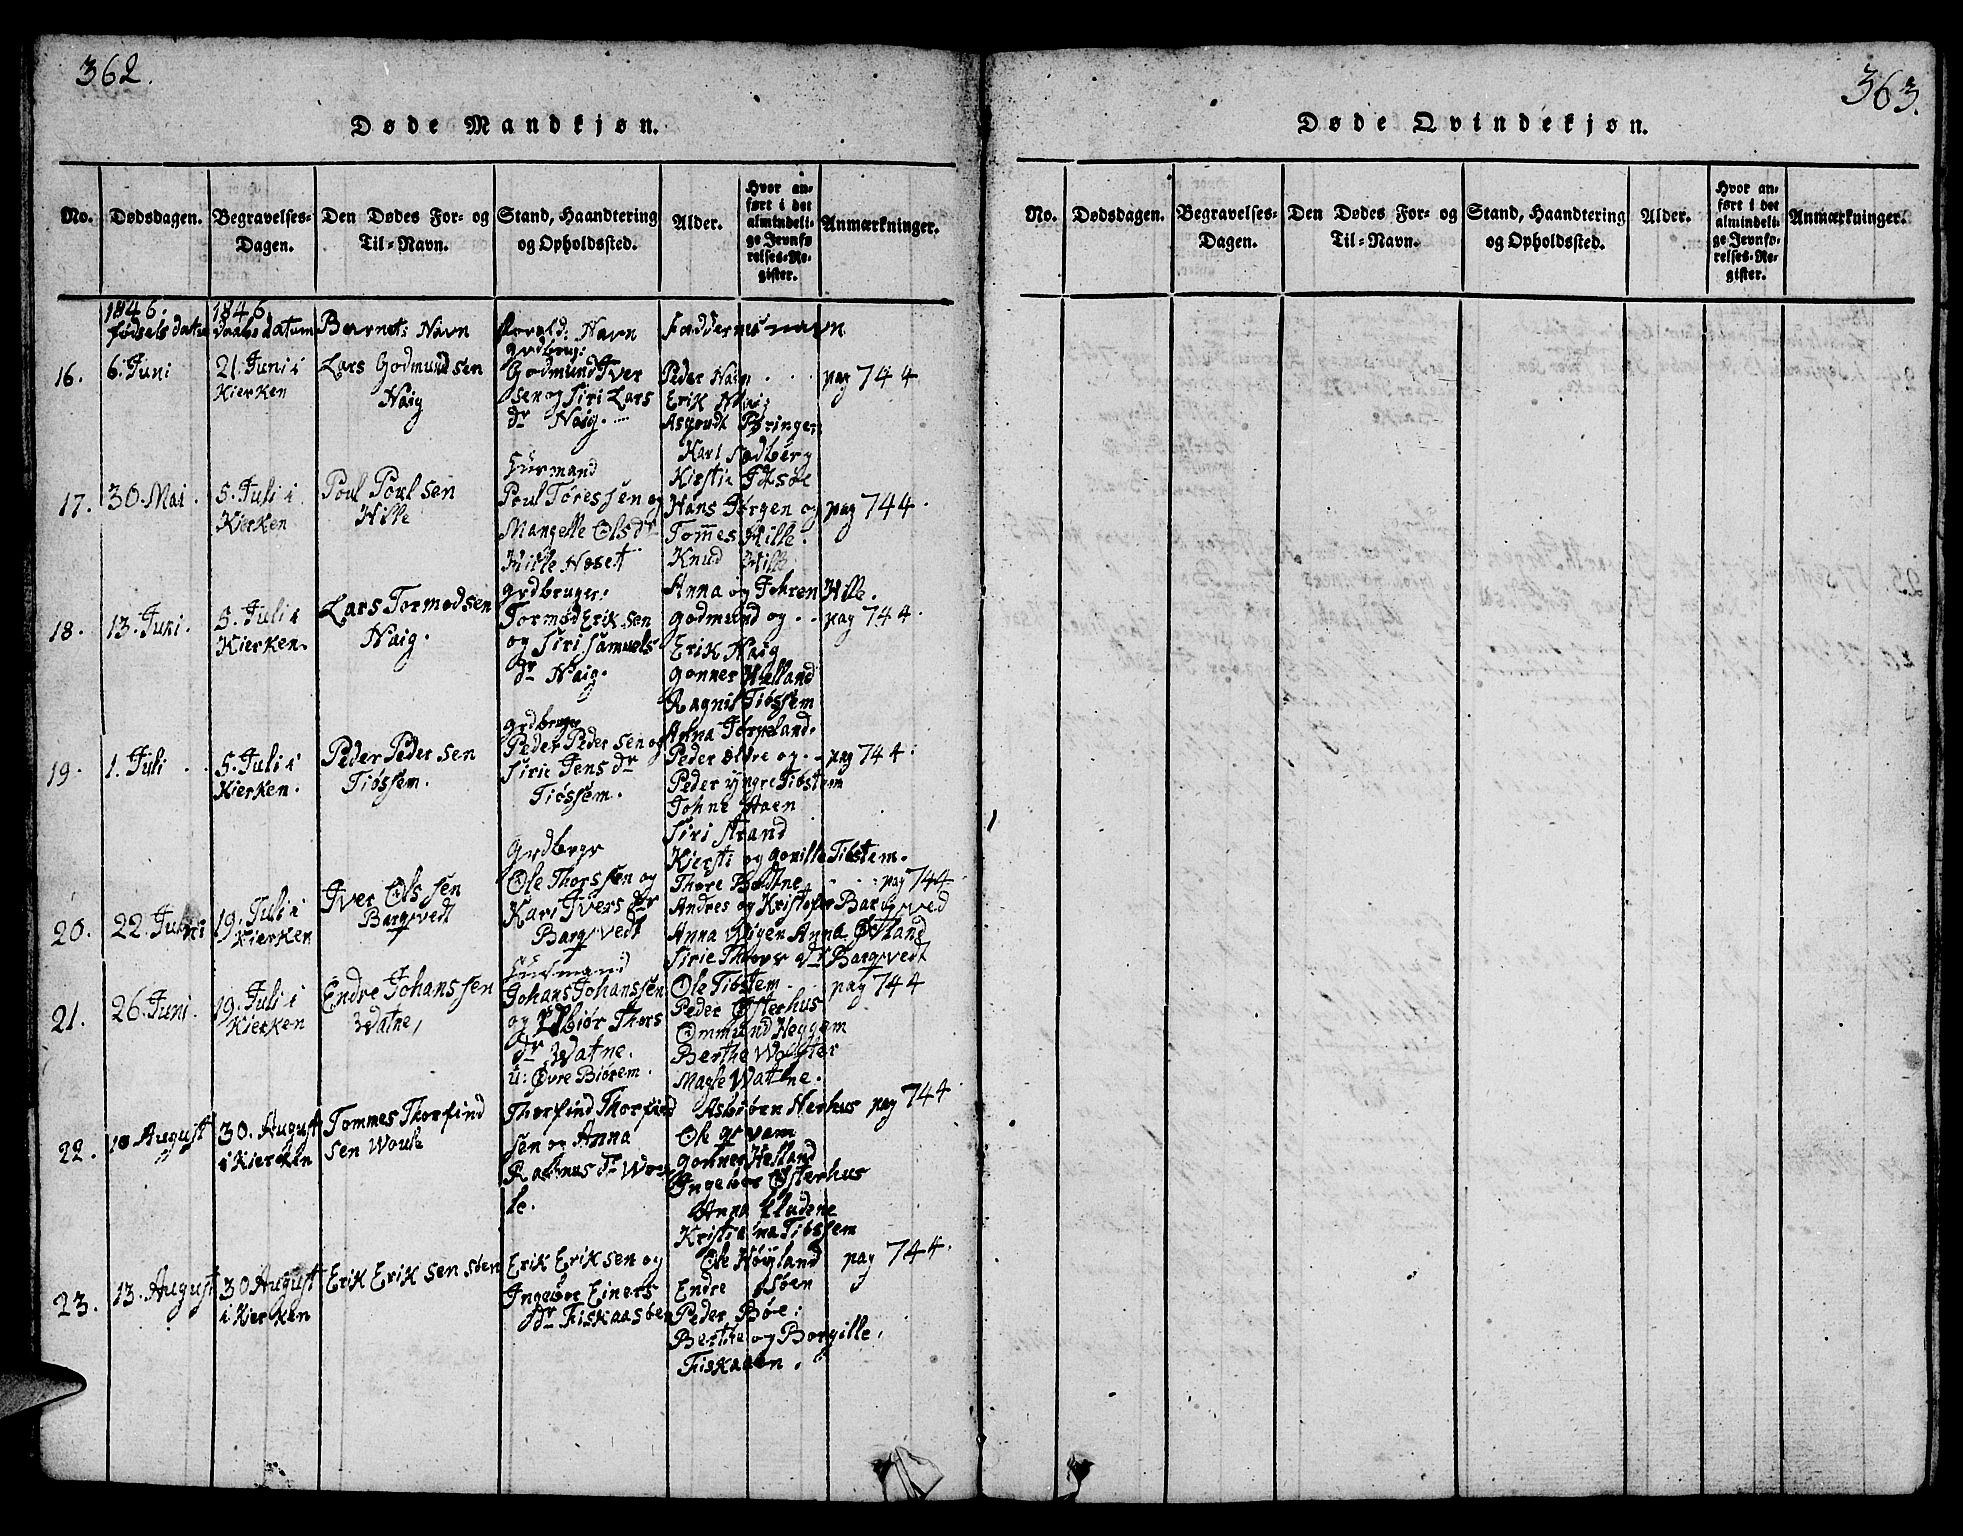 362.
Døde Mandkjøn.
No. Dødsdagen. Begravelses-Dagen. Den Dødes For- og Til-Navn. Stand, Haandtering og Opholdssted. Alder. Hvor anført i det almindelige Jevnførelses-Register. Anmærkninger.
1846. 1846.
fødsels datum Daabs datum Barnets Navn Foræld: Navn Faddernes navn
16. 6. Juni 21. Juni i Kierken Lars Godmundsen Haig
grdbrug:
Godmund Iver
sen og Siri Lars
dr Haig.
Peder Haig pag 744
Erik Haig
Asgoudt Bringen
Karl Sødberg
Kirstie Idsøe
17. 30. Mai. 5. Juli i Kierken Poul Poulsen Hille
Huusmand
Poul Töressen og
Mangelle Olsdr
Hille Neset
Hans Jørgen og pag 744.
Tommes Hille.
Knud Hille
Anna og Johren Hille.
18. 13. Juni. 5. Juli i Kierken. Lars Tormodsen Haig.
grdbruger:
Tormod Eriksen
og Siri Samuels
dr Haig.
godmund og pag 744.
Erik Haig
gonner Helland
Ragnil Tiössem
Anna Jørpeland.
19. 1. Juli 5. Juli i Kierken. Peder Pedersen Tiössem.
grdbruger
Peder Pedersen og
Sirie Jens dr
Tiössem.
Peder eldre og pag 744.
Peder yngre Tiöstem
Johne Haen
Siri Strand
Kiersti og gonille Tiöstem.
20. 22. Juni 19. Juli i Kierken Iver Olssen Bargsvedt
grdbrgr
Ole Thorssen og
Kari Ivers dr
Bargsvedt
Thore Bøtne pag 744
Andres og Kristofer Bargsved
Anna Wigen Anna Øvland
Sirie Thors dr Bargsvedt
21. 26. Juni. 19. Juli i Kierken Endre Johanssen Watne,
Huusmand
Johans Johanssen
og Thors
dr Watne.
u: Øvre Biörem.
Ole Tiöstem pag 744
Peder Østerhus
Ommund Heggem
Berthe Wolster
Magle Watne.
22. 10 August 30. August i Kierken Tommes Thorfindsen Woule
Thorfind Thorfind
sen og Anna
Rasmus dr Wou
le.
Asbiören Nerhus pag 744
Ole qvam
gonner Helland
Ingebör Østerhus
Anna
Kristiana Tiössem
23. 13. August 30 August i Kierken Erik Eriksen söen
Erik Eriksen og
Ingebör Einers
dr Fiskaasöen
Ole Høyland pag 744.
Endre søen
Peder Bøe:
Berthe og Borgille,
Fiskaaen.
363.
Døde Qvindekjøn.
No. Dødsdagen. Begravelses-Dagen. Den Dødes For- og Til-Navn. Stand, Haandtering og Opholdssted. Alder. Hvor anført i det almindelige Jevnførelses-Register. Anmærkninger.